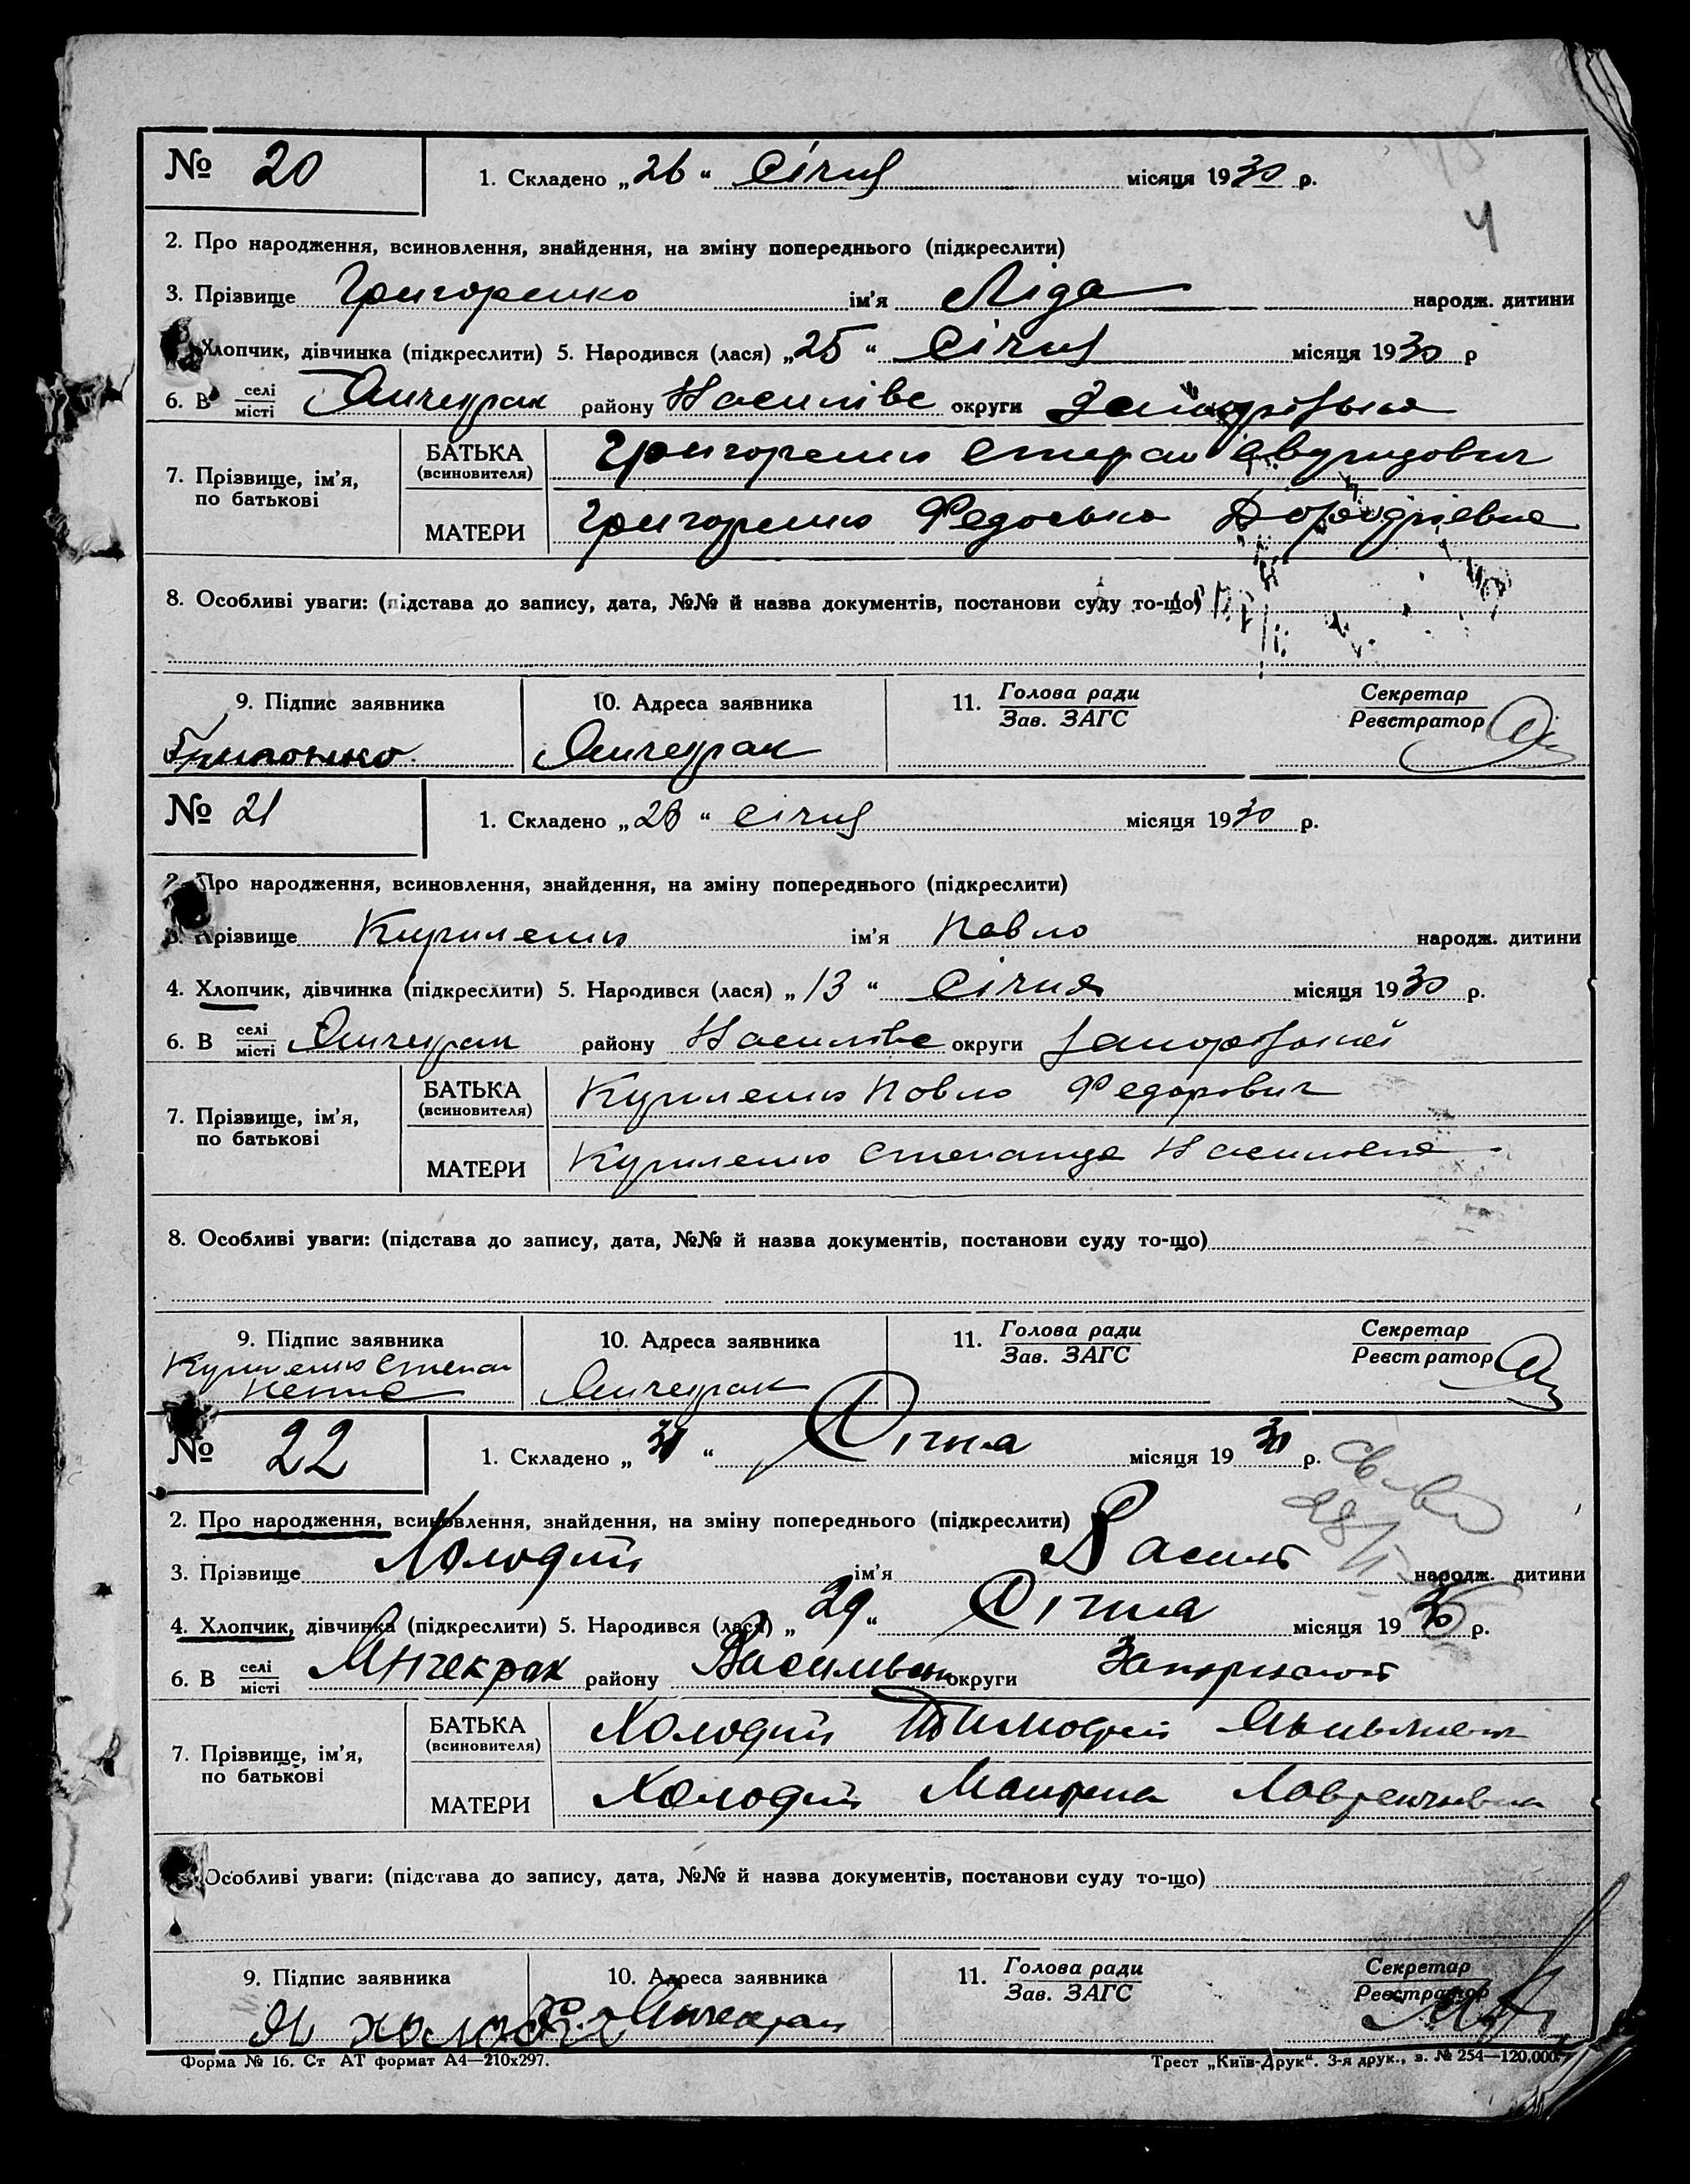 4
№ 20 1. Складено „26“ Січня місяця 1930 р.
2. Про народження, всиновлення, знайдення, на зміну попереднього (підкреслити)
3. Прізвище Григоренко ім'я Ліда народж. дитини
Хлопчик, дівчинка (підкреслити) 5. Народився (лася) „25“ Січня місяця 1930 р
6. В селі/місті Янчекрак району Василівс округи
7. Прізвище, ім'я, по батькові
БАТЬКА (всиновителя) Григоренко Степан
МАТЕРИ Григоренко Федоська
8. Особливі уваги: (підстава до запису, дата, №№ й назва документів, постанови суду то-що)
9. Підпис заявника 10. Адреса заявника 11. Голова ради/Зав. ЗАГС Секретар/Реєстратор
Янчекрак
№ 21 1. Складено „26“ січня місяця 1930 р.
2. Про народження, всиновлення, знайдення, на зміну попереднього (підкреслити)
3. Прізвище Кириленко ім'я Павло народж. дитини
4. Хлопчик, дівчинка (підкреслити) 5. Народився (лася) „13“ Січня місяця 1930 р.
6. В селі/місті Янчекрак району Василівс округи Запоріської
7. Прізвище, ім'я, по батькові
БАТЬКА (всиновителя) Кириленко Павло Федорович
МАТЕРИ Кириленко Степанида Василевна
8. Особливі уваги: (підстава до запису, дата, №№ й назва документів, постанови суду то-що)
9. Підпис заявника 10. Адреса заявника 11. Голова ради/Зав. ЗАГС Секретар/Реєстратор
Кириленко Степан
Янчекрак
№ 22 1. Складено „31“ Січня місяця 1930 р.
2. Про народження, всиновлення, знайдення, на зміну попереднього (підкреслити)
3. Прізвище Холодій ім'я Василь народж. дитини
4. Хлопчик, дівчинка (підкреслити) 5. Народився (лася) „29“ Січня місяця 1930 р.
6. В селі/місті Янчекрак району Васильвськ округи
7. Прізвище, ім'я, по батькові
БАТЬКА (всиновителя) Холодій Тимофій
МАТЕРИ Холодій Лаврентивна
Особливі уваги: (підстава до запису, дата, №№ й назва документів, постанови суду то-що)
9. Підпис заявника 10. Адреса заявника 11. Голова ради/Зав. ЗАГС Секретар/Реєстратор
Янчекрак
Форма № 16. Ст АТ формат А4—210х297. Трест „Київ-Друк“. 3-я друк., з. № 254—120.000.